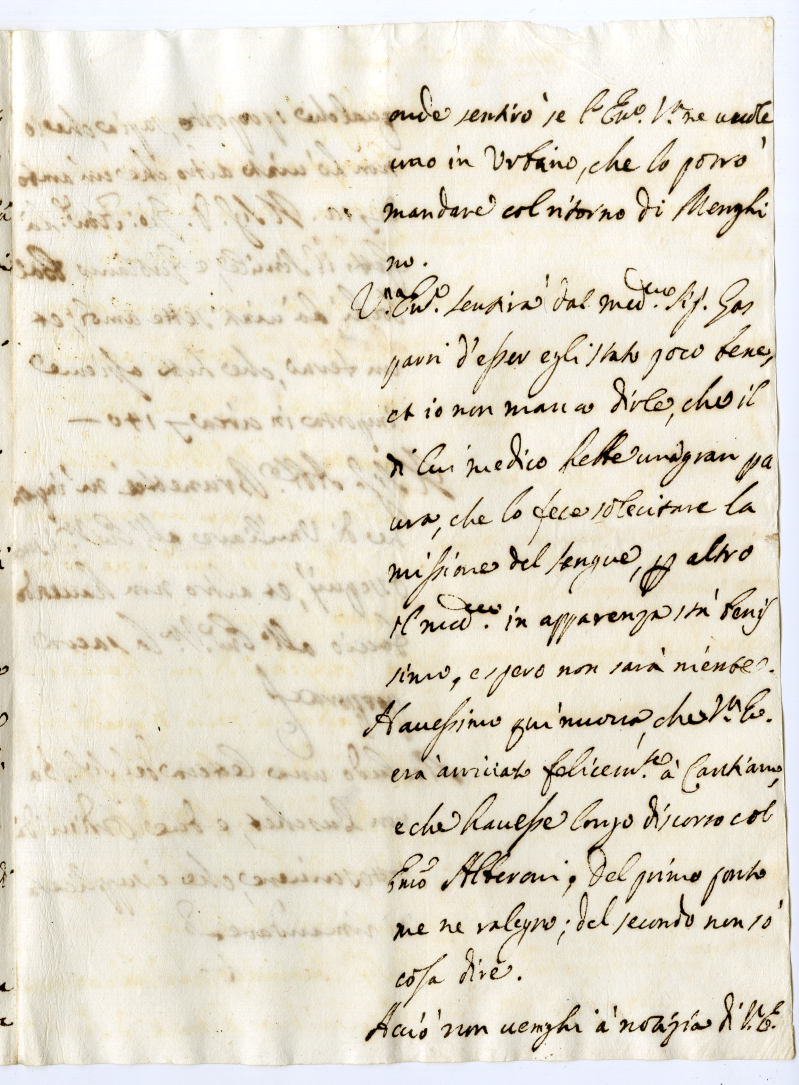 onde sentirò se l'Em.ª V.ª ne vuole
uno in Urbino, che lo potrò
mandare col ritorno di Menghi
no.
V.ra Em.ª sentirà dal med.mo Sig. Gas
parri d'esser egli stato poco bene,
et io non manco dirle, che il
di lui medico hebbe una gran pa
ura, che lo fece solecitare la
missione del sengue, p altro
il med.mo in apparenza stà benis
simo, e spero non sarà niente.
Havessimo qui nuova, che V.ª E.
era arrivato felicem.te à Cantiano,
e che havesse longo discorso col
Em.o Alberoni, del primo ponto
me ne ralegro; del secondo non sò
cosa dire.
Acciò non venghi à notizia di V.E.